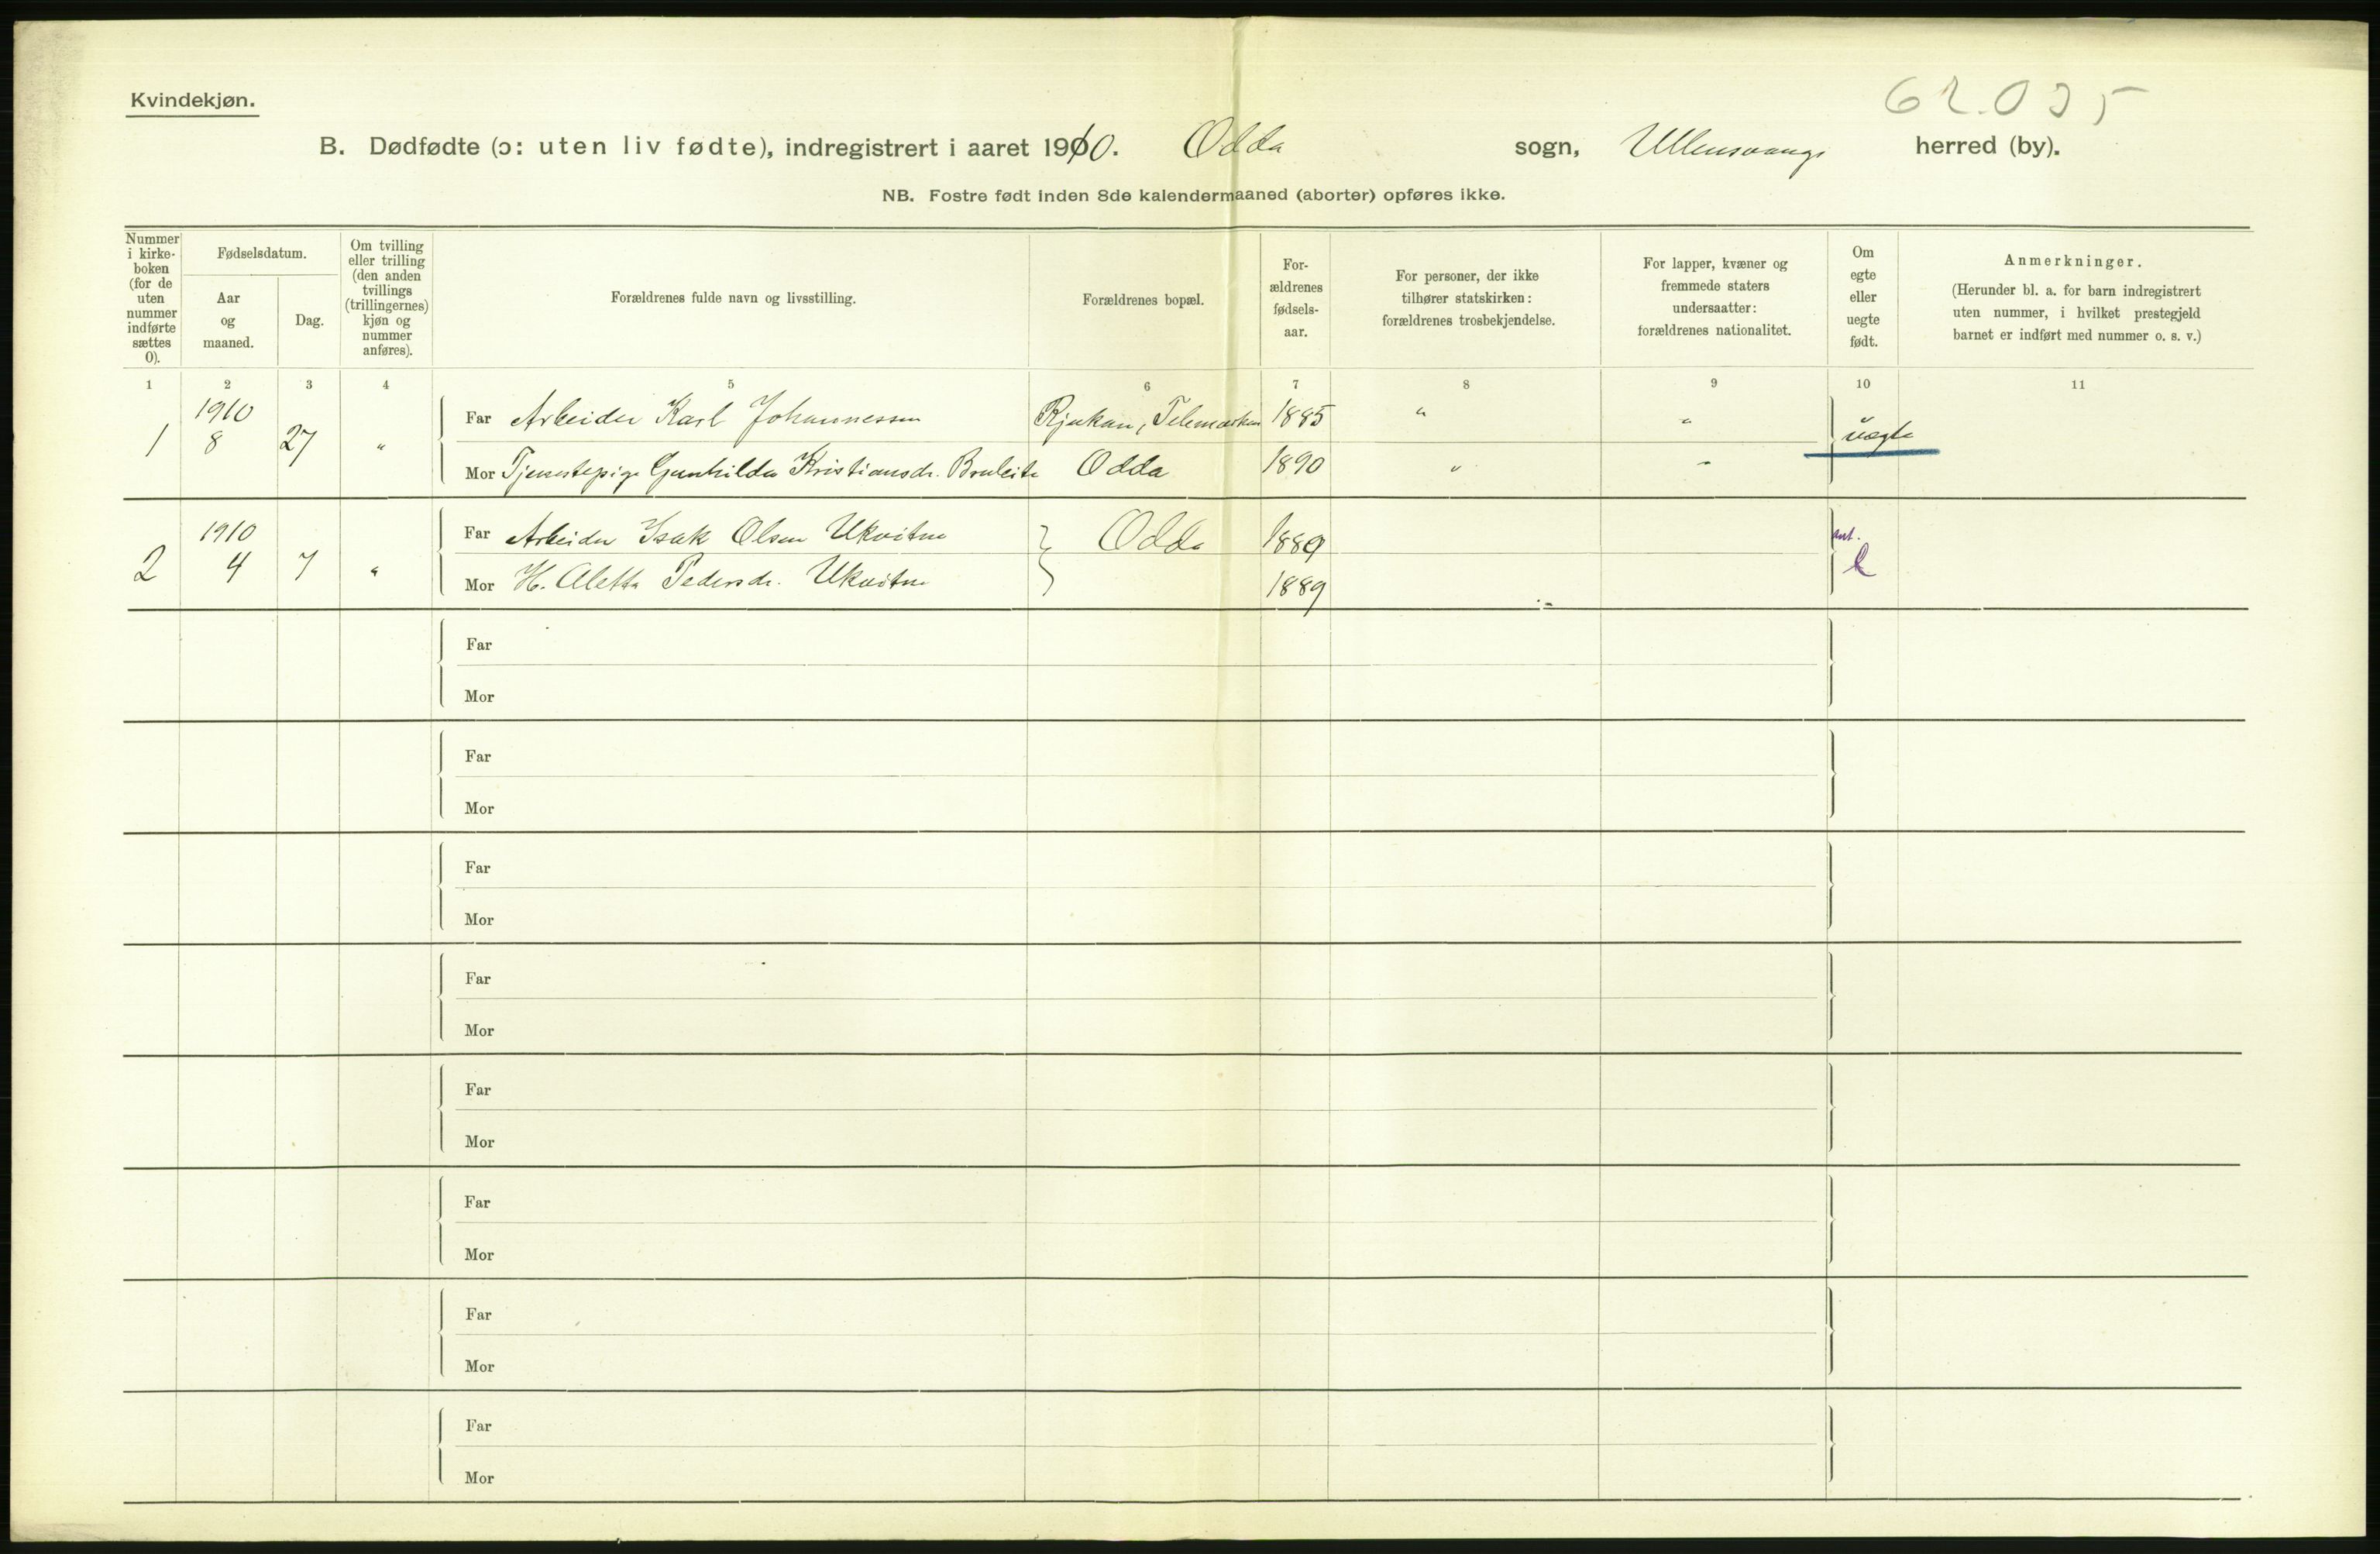 62.035
Kvindekjøn.
B. Dødfødte (ɔ: uten liv fødte), indregistrert i aaret 1910. Odda sogn, Ullensvangs herred (by).
NB. Fostre født inden 8de kalendermaaned (aborter) opføres ikke.
Nummer
i kirke-
boken
(for de
uten
nummer
indførte
sættes
0).
Fødselsdatum.
Aar
og
maaned.
Dag.
Om tvilling
eller trilling
(den anden
tvillings
(trillingernes)
kjøn og
nummer
anføres).
Forældrenes fulde navn og livsstilling.
Forældrenes bopæl.
For-
ældrenes
fødsels-
aar.
For personer, der ikke
tilhører statskirken:
forældrenes trosbekjendelse.
For lapper, kvæner og
fremmede staters
undersaatter:
forældrenes nationalitet.
Om
egte
eller
uegte
født.
Anmerkninger.
(Herunder bl. a. for barn indregistrert
uten nummer, i hvilket prestegjeld
barnet er indført med nummer o. s. v.)
1 2 3 4 5 6 7 8 9 10 11
1910
Far Arbeider Karl Johannessen Rjukan, Telemarken 1885 " "
1 8 27 " uegte
Mor Tjenestepige Gunhilda Kristiansdr. Braleite Odda 1890 " "
1910
Far Arbeider Isak Olsen Ukvitne Odda 1889
ant.
2 4 7 " e
Mor H. Aletta Pedersdr. Ukvitne 1889
Far
Mor
Far
Mor
Far
Mor
Far
Mor
Far
Mor
Far
Mor
Far
Mor
Far
Mor